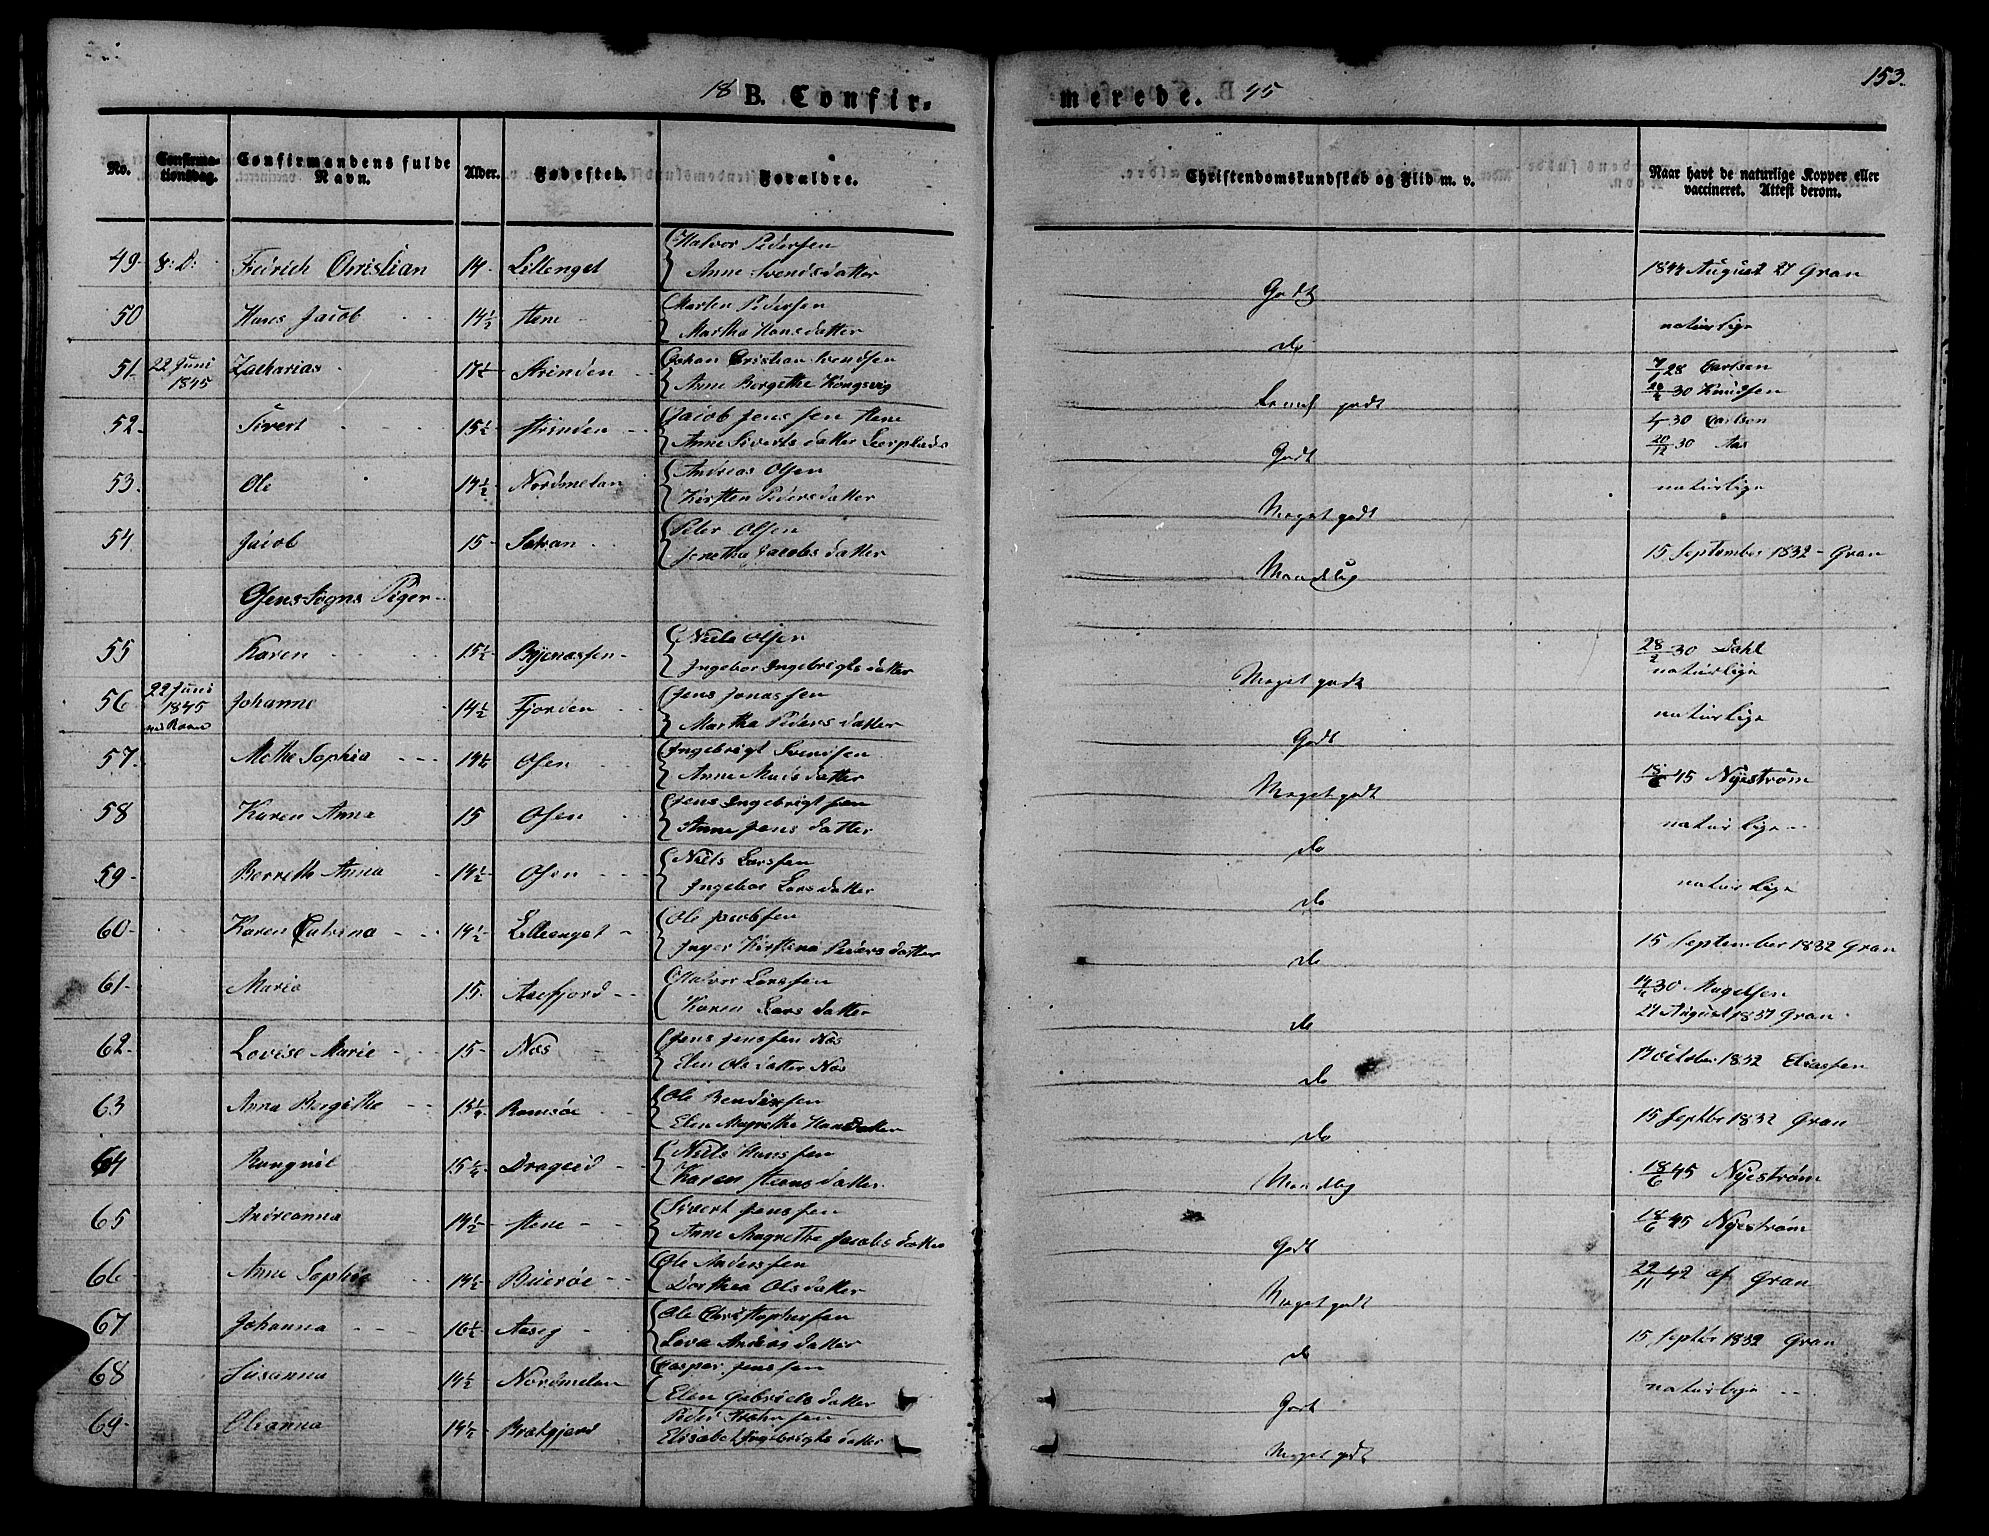 153.
18 B. Confirmerede. 45
No. Confirmationsdag. Confirmandens fulde Navn. Alder. Fødested. Forældre. Christendomskundskab og Flid m. v. Naar havt de naturlige Kopper eller vaccineret. Attest derom.
49 8: D: Fridrich Christian 14 Lillenget Halvor Pedersen
Anne Svendsdatter Godt 1844 August 27 Gran
50 Hans Jacob 14½ Stene Morten Pedersen
Martha Hansdatter do naturlige
51 22 Juni 1845 Zacharias 17½ Strinden Johan Cristian Svendsen
Anne Bergethe Kongsvig godt 28 Carlsen
30 Knudsen
52 Sivert 15½ Strinden Jacob Jenssen Stene
Anne Sivertsdatter Godt 30 Carlsen
20/12 30 Aas
53 Ole 14½ Nordmelan Andreas Olsen
Kirsten Pedersdatter Meget godt naturlige
54 Jacob 15 Peter Olsen
Jonetha Jacobsdatter Maadelig 15 September 1832 Gran
Osens Sogns Piger
55 Karen 15½ Niels Olsen
Ingebor Ingebrigtsdatter Meget godt 28/2 30 Dahl
naturlige
56 22 Juni 1845 Johanne 14½ Fjorden Jens Jonassen
Martha Pedersdatter Godt naturlige
57 Methe Sophia 14½ Osen Ingebrigt Svendsen
Anne Nielsdatter Meget godt 18/6 45 Nyestrøm
58 Karen Anna 15 Osen Jens Ingebrigtsen
Anne Jensdatter do naturlige
59 Berreth Anna 14½ Osen Niels Larssen
Ingebor Larsdatter do naturlige
60 Karen Catrina 14½ Lillenget Ole Jacobsen
Inger Kirstina Pedersdatter do 15 September 1832 Gran
61 Maria 15 Aasfjord Halvor Larssen
Karen Larsdatter do 30 Magelsen
27 August 1837 Gran
62 Lovise Marie 15 Næs Jens Jenssen Næs
Elen Olsdatter Næs do October 1832 Eliassen
63 Anna Bergithe 15½ Ramsøe Ole Bendixsen
Elen Magrethe Hansdatter do 15 Septbr 1832 Gran
64 Rangnil 15½ Drageid Niels Hanssen
Karen Hansdatter Maadelig 18/6 45 Nyestrøm
65 Andreanna 14½ Stene Sivert Jenssen
Anne Magrethe Jacobsdatter Godt 18/6 45 Nyestrøm
66 Anne Sophia 14½ Buerøe Ole Anderssen
Dorthea Olsdatter Meget godt 22/11 42 af Gran
67 Johanna 16½ Aaseg Ole Christophersen
Lova Andreasdatter do 15 Septbr 1832 Gran
68 Susanna 14½ Nordmelan Casper Jenssen
Elen Gabrielsdatter Godt naturlige
69 Oleanna 14½ Brækgjerd Peder
Elisabet Ingebrigtsdatter Meget godt